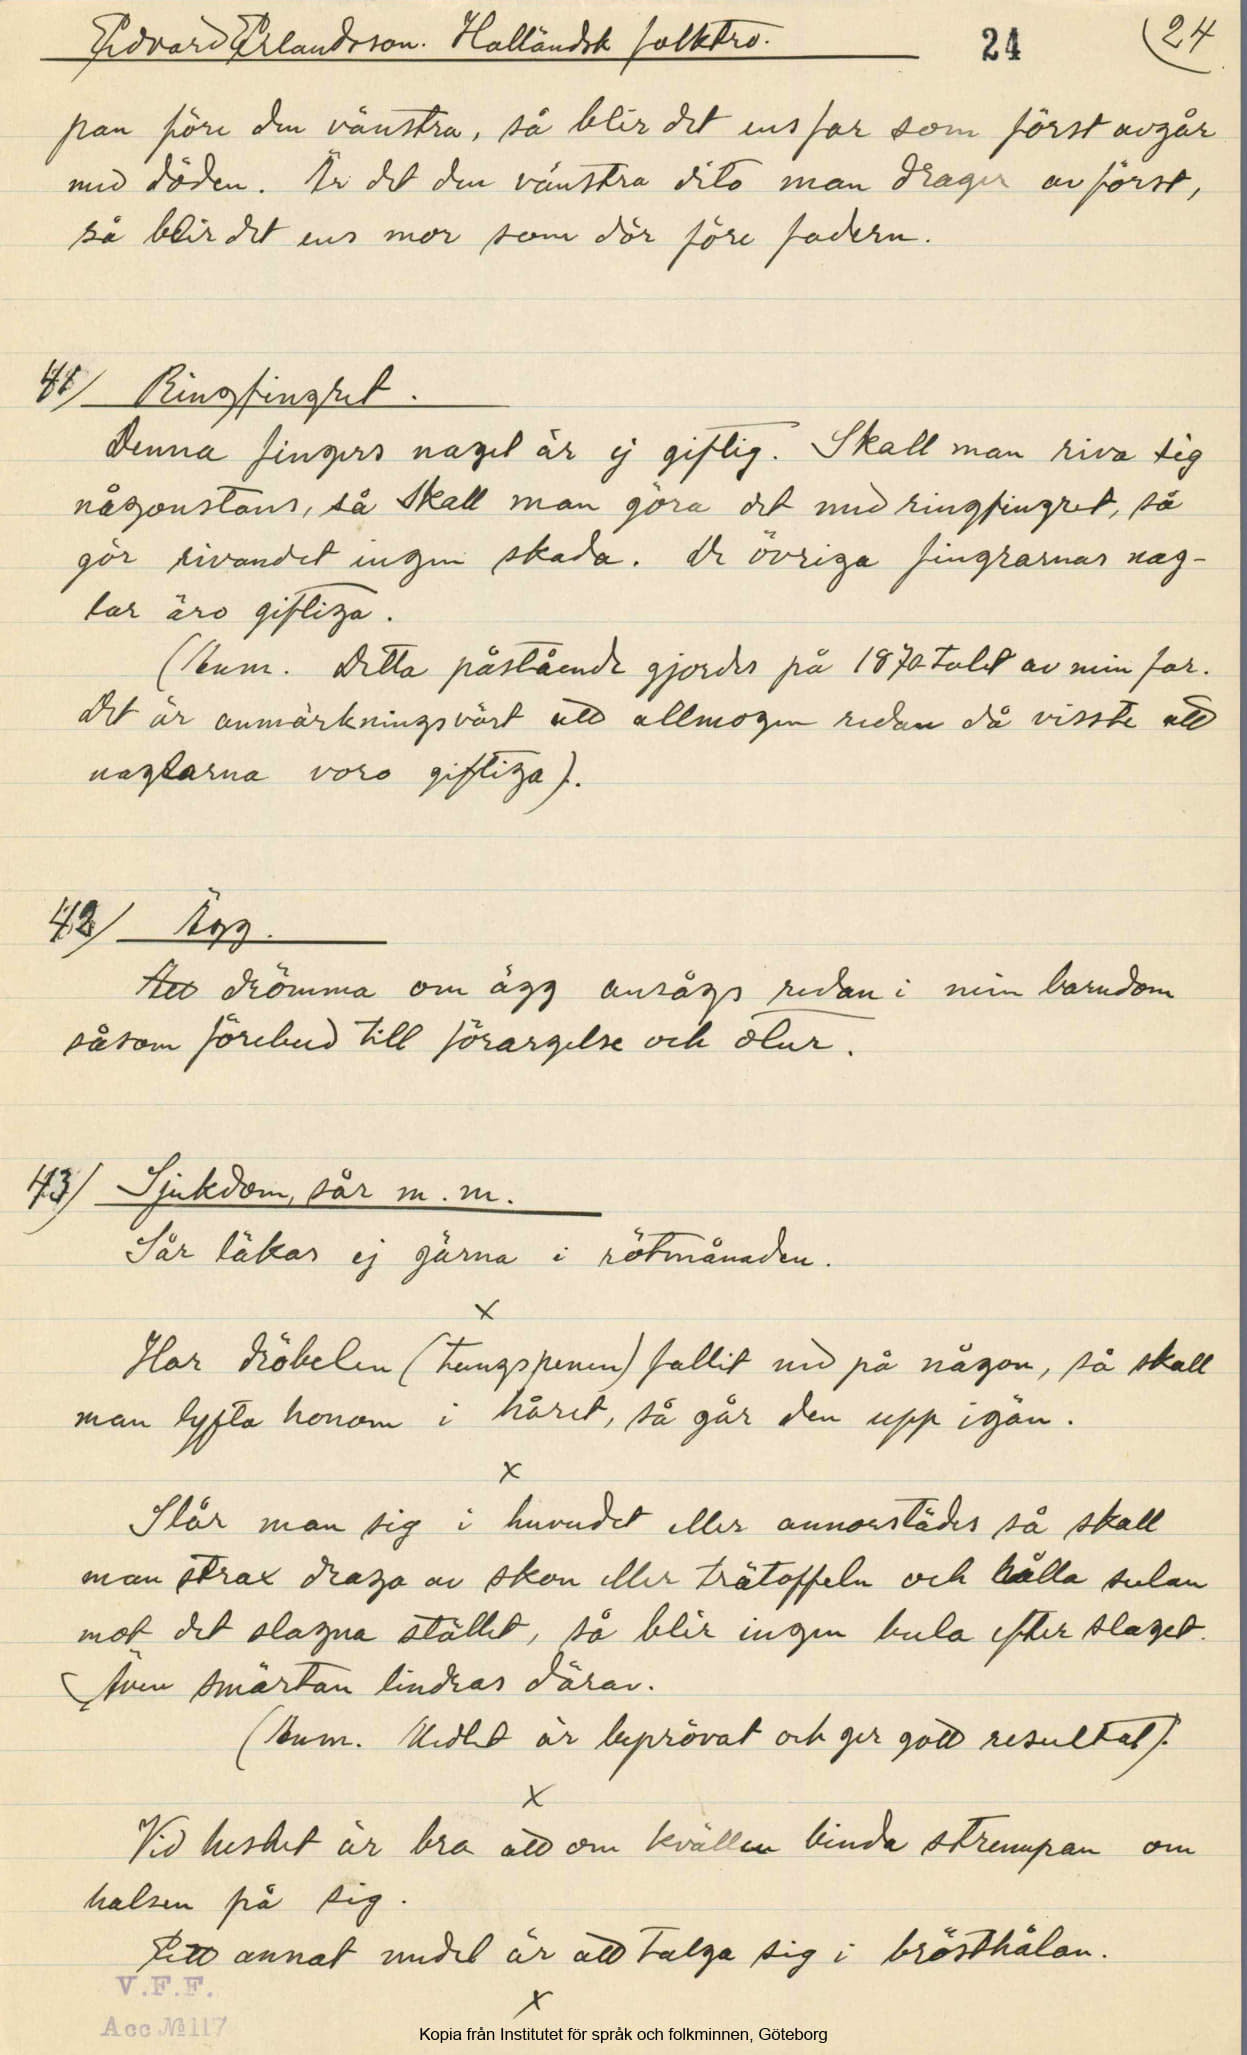 Edvard Erlandsson. Halländsk folktro. 24 24
pan före den vänstra, så blir det ens far som först avgår
med döden. Är det den vänstra dito man drager av först,
så blir det ens mor som dör före fadern.
41/ Ringfingret.
Denna fingers nagel är ej giftig. Skall man riva sig
någonstans, så skall man göra det med ringfingret, så
gör rivandet ingen skada. De övriga fingrarnas nag-
lar äro giftiga.
(Anm. Detta påstående gjordes på 1870 talet av min far.
Det är anmärkningsvärt att allmogen redan då visste att
naglarna voro giftiga).
42/ Ägg.
Att drömma om ägg ansågs redan i min barndom
såsom förebud till förargelse och olur.
43/ Sjukdom, sår m.m.
Sår läkas ej gärna i rötmånaden.
x
Har dröbelen (tungspenen) fallit ned på någon, så skall
man lyfta honom i håret, så går den upp igän.
x
Slår man sig i huvudet eller annorstädes så skall
man strax draga av skon eller trätoffeln och hålla sulan
mot det slagna stället, så blir ingen bula efter slaget.
Även smärtan lindras därav.
(Anm. Medlet är beprövat och ger gott resultat).
x
Vid heshet är bra att om kvällen binda strumpan om
halsen på sig.
Ett annat medel är att talga sig i brösthålan.
x
V.F.F.
Acc №117
Kopia från Institutet för språk och folkminnen, Göteborg